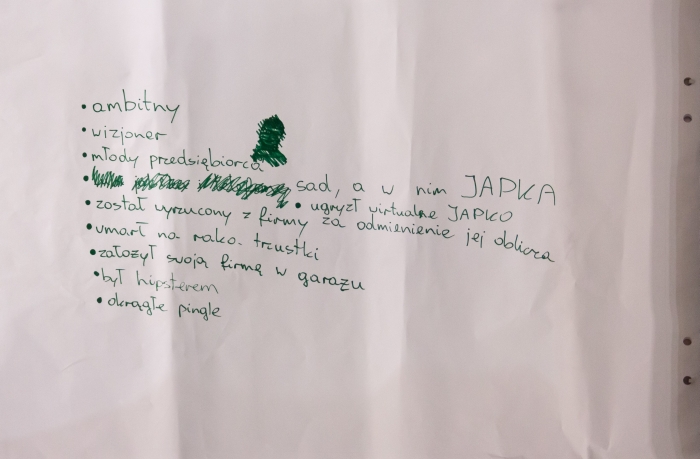 • ambitny
• wizjoner
• młody przedsiębiorca
• sad, a w nim JAPKA
• ugryzł wirtualne JAPKO
• został wyrzucony z firmy za odmienienie jej oblicza
• umarł na raka trzustki
• założył swoją firmę w garażu
• był hipsterem
• okrągłe pingle